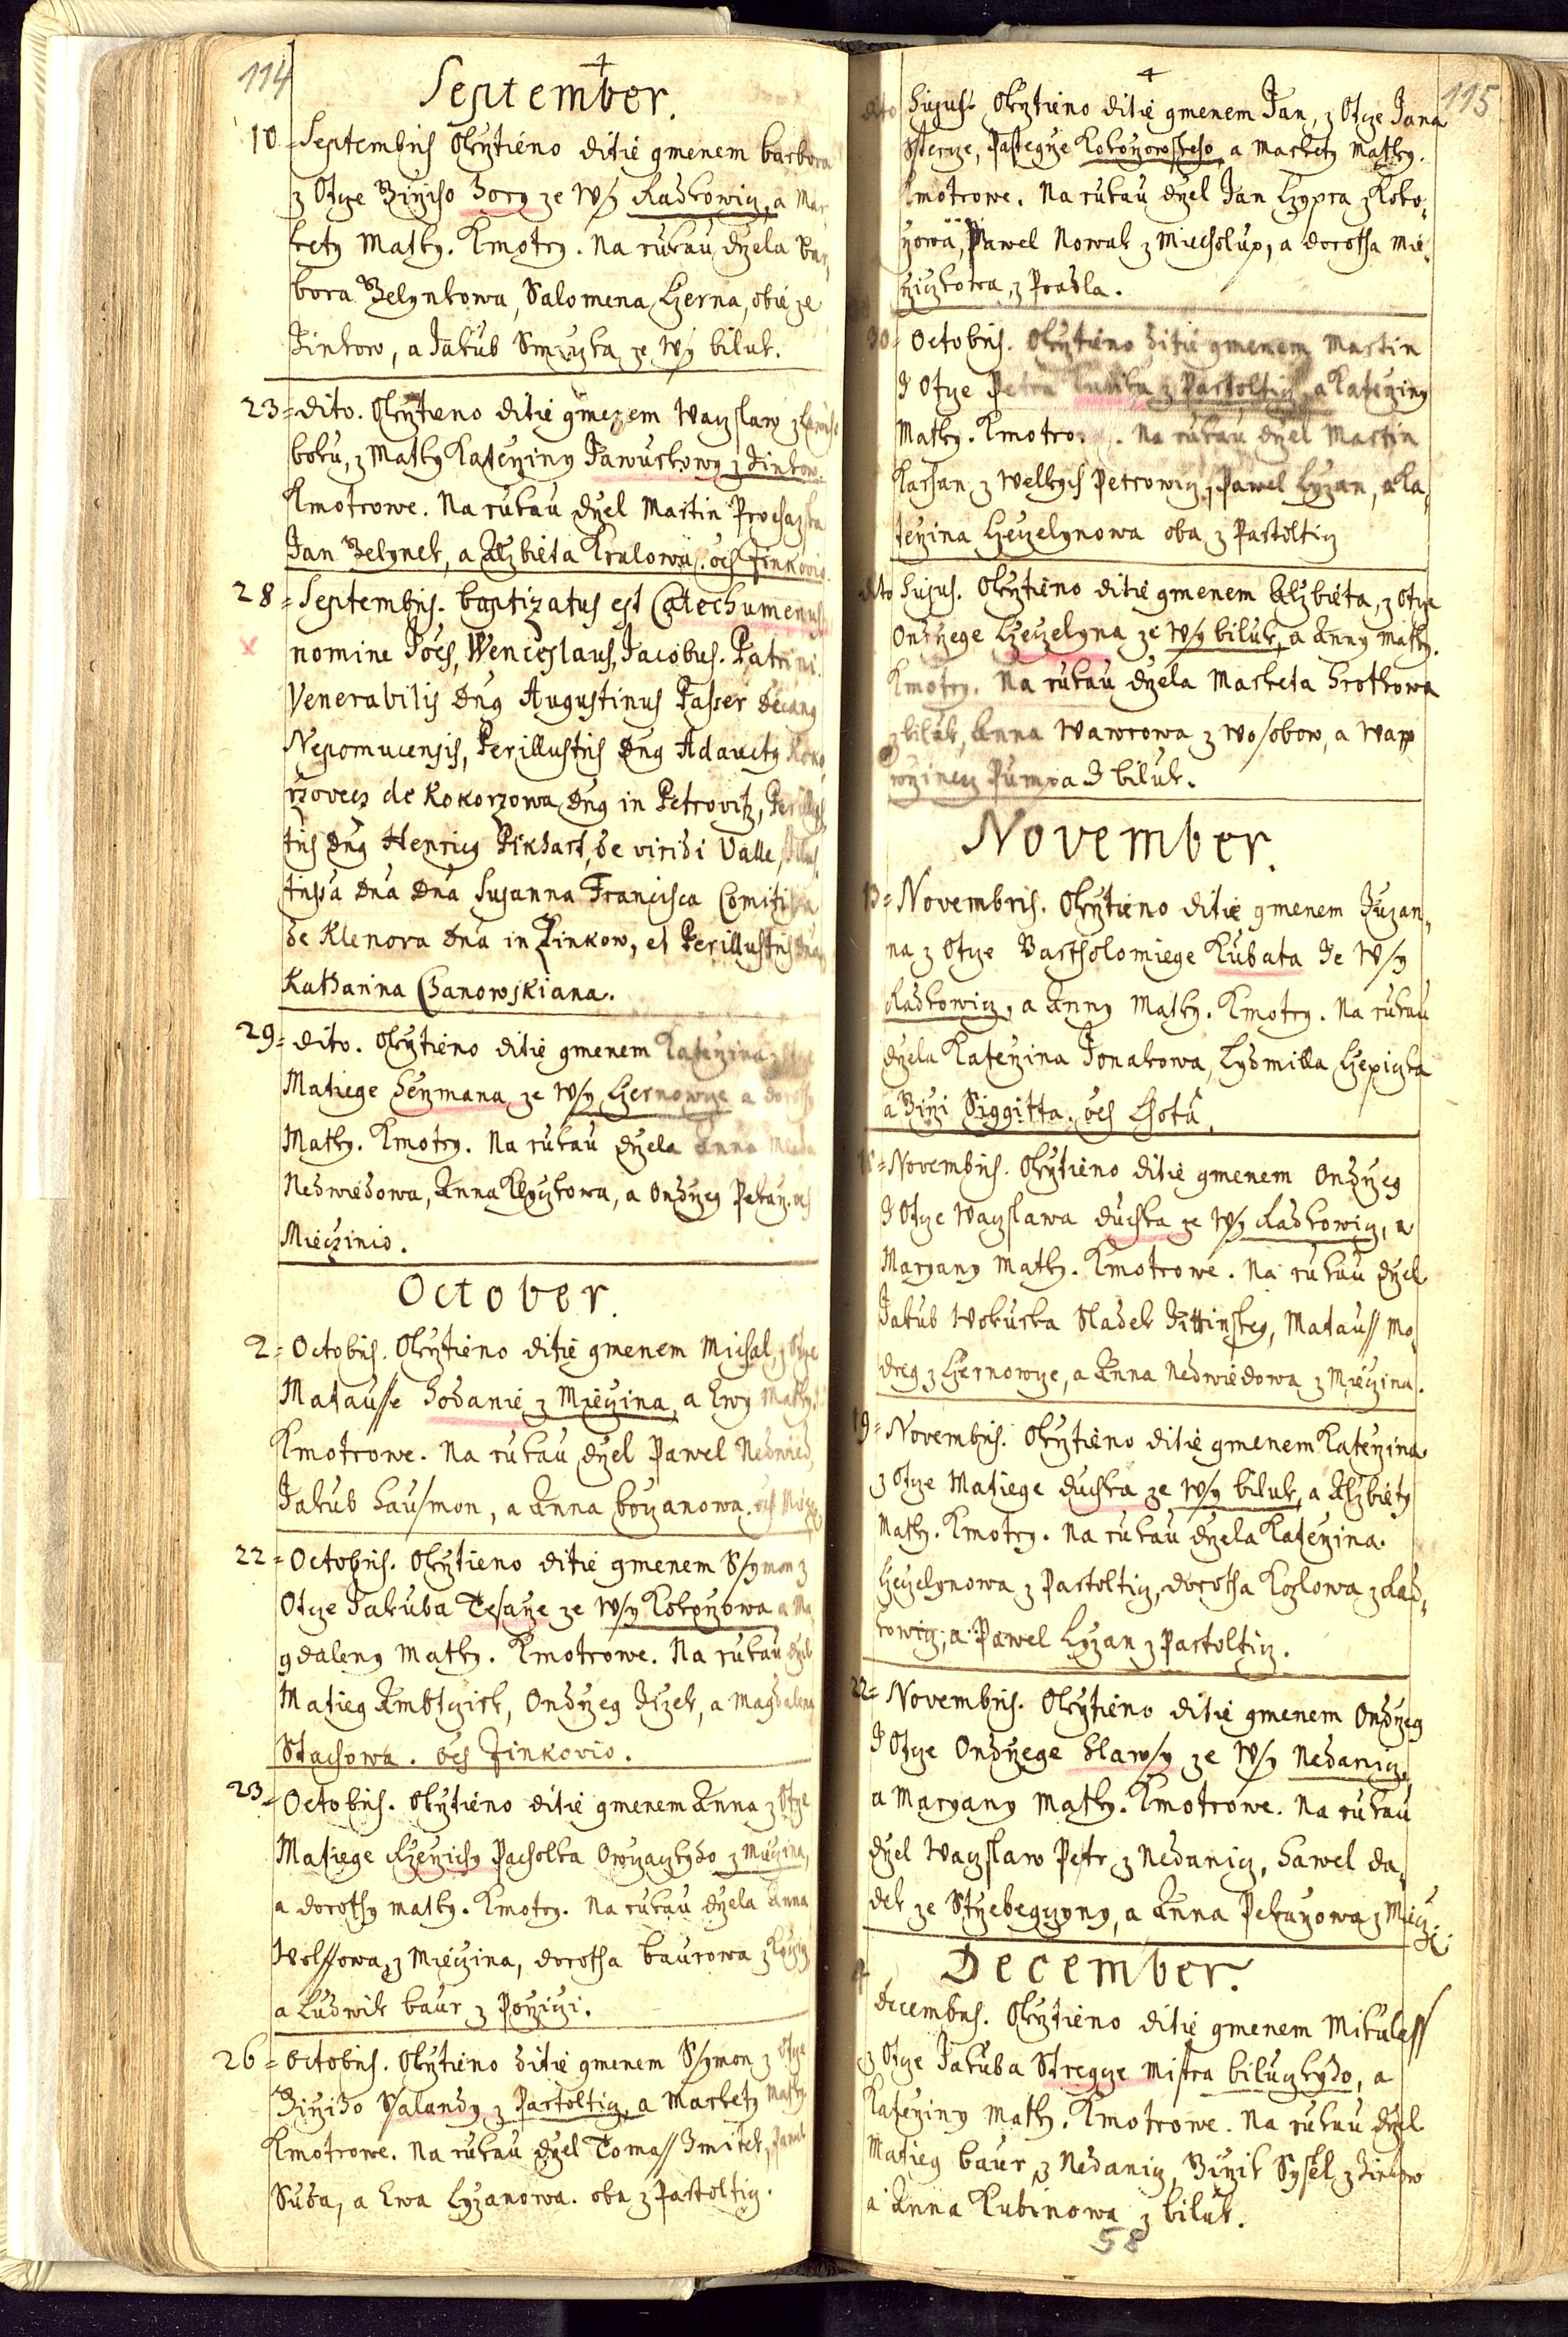 114
September.
10 = Septembris Okrztieno ditie gmenem barbora
z Otcze Birziho Hory ze Wsy Radkowicz, a Mar
kety Matky. Kmotry. Na rukau drzela Bar,
bora Zelynkowa, Salomena Czerna, obie ze
Zinkow, a Jakub Smrczka ze Wsy biluk.
23 = dito. Okrztieno ditie gmenem Waczslaw z
boku, z Matky Katerziny Pawuckowy z Zinkow.
Kmotrowe. Na rukau drzel Martin Prochazka
Jan Zelynek, a Alzbieta Kralowa. oes Zinkovio.
28 = Septembris. baptizatus est Catechumenus
nomine Joes, Wenceslaus, Jacobus. Patrini.
Venerabilis Dng Augustinus Passer Decang
Nepomucensis, Perillustris Dng Adauctg Koko
rzovecz de Kokorzowa Dng in Petrovitz, Perillus
tris Dng Henricg Pikhart, de viridi Valle, Illus
trissa Dna Dna Susanna Francisca Comitissa
de Klenova Dna in Zinkow, et Perillustris Dna
Katharina Chanowskiana.
29 = dito. Okrztieno ditie gmenem Katerzina z Otcze
Matiege Herzmana ze Wsy Czernowze a dorothy
Matky. Kmotry. Na rukau drzela Anna
Nedwiedowa, Anna Klyczkowa, a Ondrzeg Pekarz. oes
Mieczinio.
October.
2 = Octobris. Okrztieno ditie gmenem Michal, z Otcze
Matausse Hodanie z Mieczina, a Ewy Matky.
Kmotrowe. Na rukau drzel Pawel Nedwied,
Jakub Hausmon, a Anna borzanowa. oes
22 = Octobris. Okrztieno ditie gmenem Ssymon z
Otcze Jakuba Tesarze ze Wsy Kokorzowa a Ma
gdaleny Matky. Kmotrowe. Na rukau drzel
Matieg Ambtczirk, Ondrzeg Jizek, a Magdalena
Stachowa. oes Zinkovio.
23 = Octobris. Okrztieno ditie gmenem Anna z Otcze
Matiege Rzerzichy Pacholka Owczaczkyho z Mieczina,
a dorothy matky. Kmotry. Na rukau drzela Anna
Wolssowa, z Mieczina, dorotha baurowa z
a Ludwik baur z Porziczi.
26 = Octobris. Okrztieno ditie gmenem Ssymon z Otcze
Birziho Ssalandy z Partolticz, a Markety Matky
Kmotrowe. Na rukau drzel Tomass Zmitek, Pawel
Suda, a Ewa Cyzanowa. oba z Partoltic.
115
dito hujus. Okrztieno ditie gmenem Jan, z Otcze Jana
Ssterze, Pastegrze Kokorzowskeho, a Markety Matky.
Kmotrowe. Na rukau drzel Jan Czypra z Koko,
rzowa, Pawel Nowak z Miecholup, a dorotha Mie
chiczkowa, z Pradla.
30 = Octobris. Okrztieno ditie gmenem Martin
z Otcze Petra z Partoltic, a Katerziny
Matky. Kmotro. Na rukau drzel Martin
Kachan z Welkych Petrowicz, Pawel Cyzan, a Ka,
terzina Czeczelynowa oba z Partoltic
dito hujus. Okrztieno ditie gmenem Alzbieta, z Otcze
Ondrzege Czeczelyna ze Wsy biluk, a Anny Matky.
Kmotry. Na rukau drzela Marketa Hrotkowa
z biluk, Anna Wawrowa z Wosobow, a Waw
rzinecz Pumpa z biluk.
November.
13 = Novembris. Okrztieno ditie gmenem Zuzan,
na z Otcze Bartholomiege Kubata ze Wsy
Radkowicz, a Anny Matky. Kmotry. Na rukau
drzela Katerzina Jonakowa, Lydmilla Czepiczka
a Birzi Siggitta. oes Lhota.
18 = Novembris. Okrztieno ditie gmenem Ondrzeg
z Otcze Waczslawa duchka ze Wsy Radkowicz, a
Maryany Matky. Kmotrowe. Na rukau drzel
Jakub Wokurka Sladek Zittinskey, Matauss Mo,
dreg z Czernowze, a Anna Nedwiedowa z Mieczina.
19 = Novembris. Okrztieno ditie gmenem Katerzina
z Otcze Matiege duchka ze Wsy biluk, a Alzbiety
Matky. Kmotry. Na rukau drzela Katerzina
Czeczelynowa z Partoltic, dorotha Kozlowa z Rad,
kowicz, a Pawel Cyzan z Partoltic.
22 = Novembris. Okrztieno ditie gmenem Ondrzeg
z Otcze Ondrzege Hlawsy ze Wsy Nedanicz,
a Maryany Matky. Kmotrowe. Na rukau
drzel Waczslaw Petr z Nedanicz, Hawel da,
dek ze Strzebegczyny, a Anna Pekarzowa z Miecz.
December.
4 Decembris. Okrztieno ditie gmenem Mikulass
z Otcze Jakuba Stregcze Mistra biluczkyho, a
Katerziny Matky. Kmotrowe. Na rukau drzel
Matieg baur, z Nedanicz, Birzik Sysel z Zinkow
a Anna Kubinowa z biluk.
58